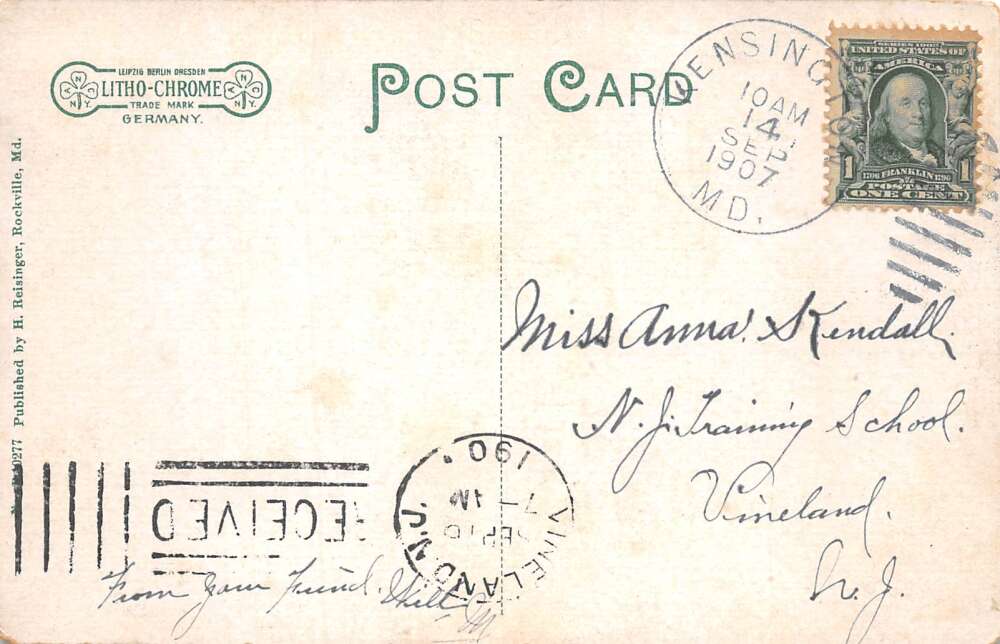 LEIPZIG BERLIN DRESDEN
LITHO-CHROME
TRADE MARK
GERMANY.
N Y
POST CARD
KENSINGTON
10 AM
14
SEP
1907
MD.
SERIES 1902
UNITED STATES OF
AMERICA
1706 FRANKLIN 1790
POSTAGE
1 ONE CENT 1
Published by H. Reisinger, Rockville, Md.
Miss Anna Kendall.
N. J. Training School.
Vineland.
N. J.
VINELAND, N.J.
SEP 16
7- AM
190
RECEIVED
From your Friend. Will M